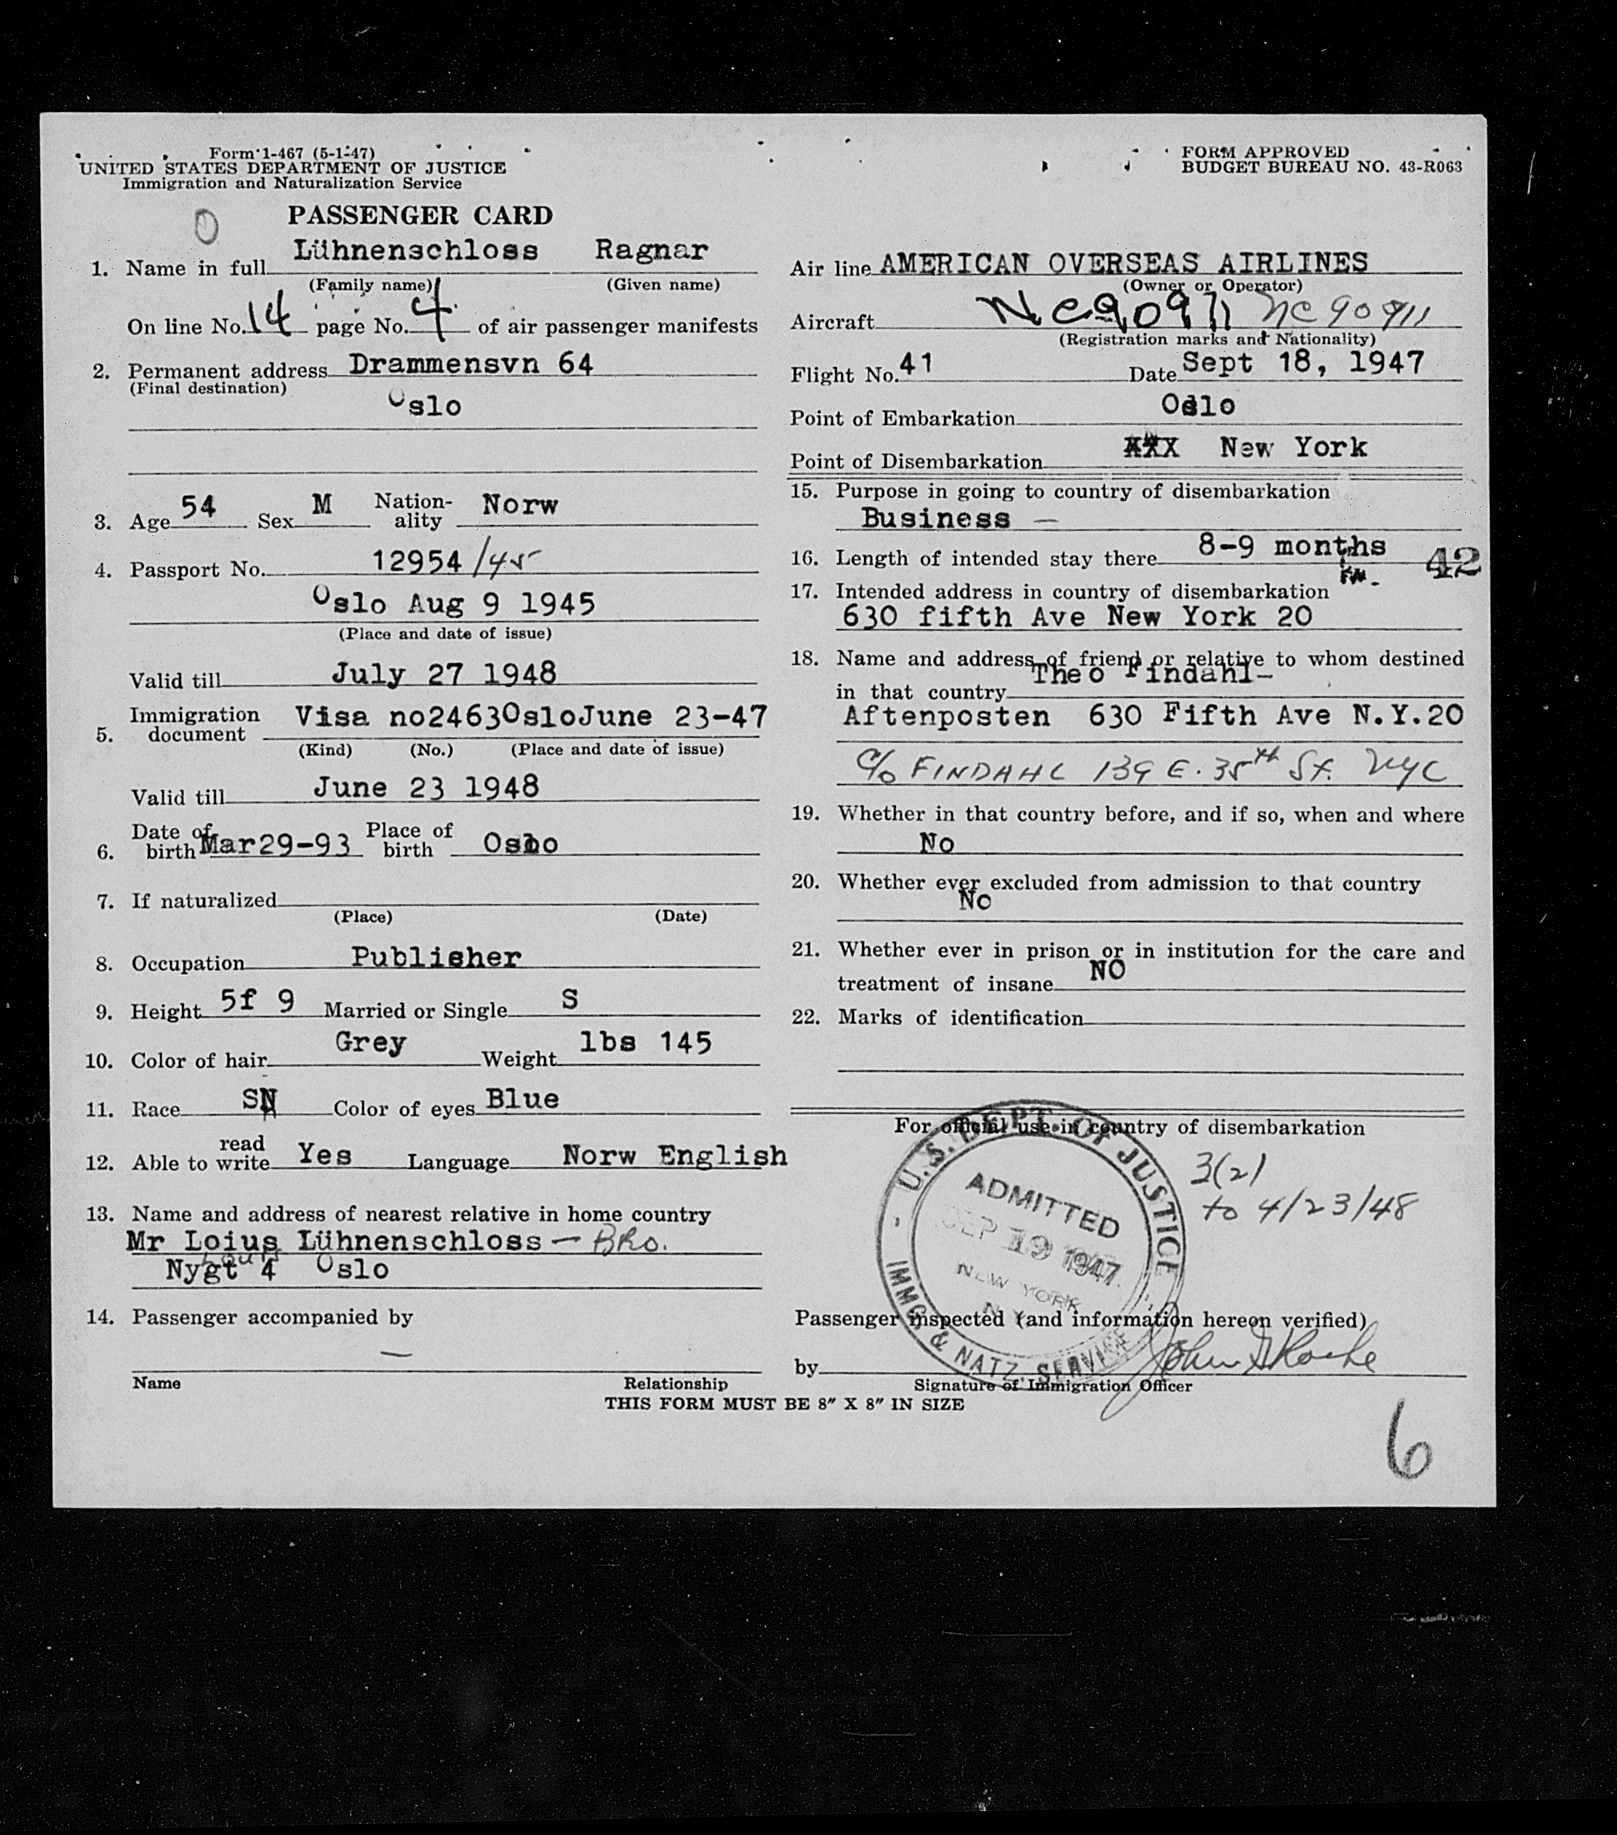 Form 1-467 (5-1-47)
UNITED STATES DEPARTMENT OF JUSTICE
Immigration and Naturalization Service
FORM APPROVED
BUDGET BUREAU NO. 43-R063
PASSENGER CARD
1. Name in full Lühnenschloss Ragnar
(Family name) (Given name)
On line No. 14 page No. 4 of air passenger manifests
2. Permanent address Drammensvn 64
(Final destination)
Oslo
3. Age 54 Sex M Nation-ality Norw
4. Passport No. 12954/45
Oslo Aug 9 1945
(Place and date of issue)
Valid till July 27 1948
5. Immigration document Visa no2463OsloJune 23-47
(Kind) (No.) (Place and date of issue)
Valid till June 23 1948
6. Date of birth Mar29-93 Place of birth Oslo
7. If naturalized
(Place) (Date)
8. Occupation Publisher
9. Height 5f 9 Married or Single S
10. Color of hair Grey Weight lbs 145
11. Race SN Color of eyes Blue
12. Able to read write Yes Language Norw English
13. Name and address of nearest relative in home country
Mr Loius Lühnenschloss - Bro.
Louis
Nygt 4 Oslo
14. Passenger accompanied by
—
Name Relationship
Air line AMERICAN OVERSEAS AIRLINES
(Owner or Operator)
Aircraft NC90911 NC90911
(Registration marks and Nationality)
Flight No. 41 Date Sept 18, 1947
Point of Embarkation Oslo
Point of Disembarkation New York
15. Purpose in going to country of disembarkation
Business —
16. Length of intended stay there 8-9 months 42
17. Intended address in country of disembarkation
630 fifth Ave New York 20
18. Name and address of friend or relative to whom destined
in that country Theo Findahl-
Aftenposten 630 Fifth Ave N.Y.20
C/o FINDAHL 139 E. 35th St. NYC
19. Whether in that country before, and if so, when and where
No
20. Whether ever excluded from admission to that country
No
21. Whether ever in prison or in institution for the care and
treatment of insane NO
22. Marks of identification
For official use in country of disembarkation
U.S. DEPT. OF JUSTICE
ADMITTED
SEP 19 1947
NEW YORK
N.Y.
IMMG & NATZ. SERVICE
3(2)
to 4/23/48
Passenger inspected (and information hereon verified)
by John Roche
Signature of Immigration Officer
THIS FORM MUST BE 8" X 8" IN SIZE
6